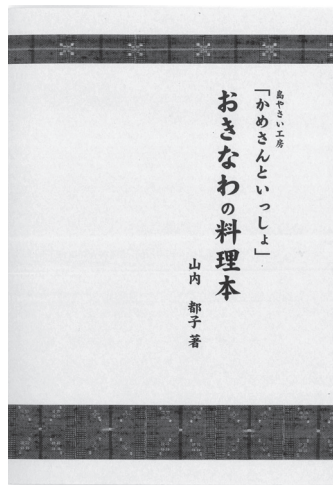 島やさい工房
「かめさんといっしょ」
おきなわの料理本
山内 都子 著